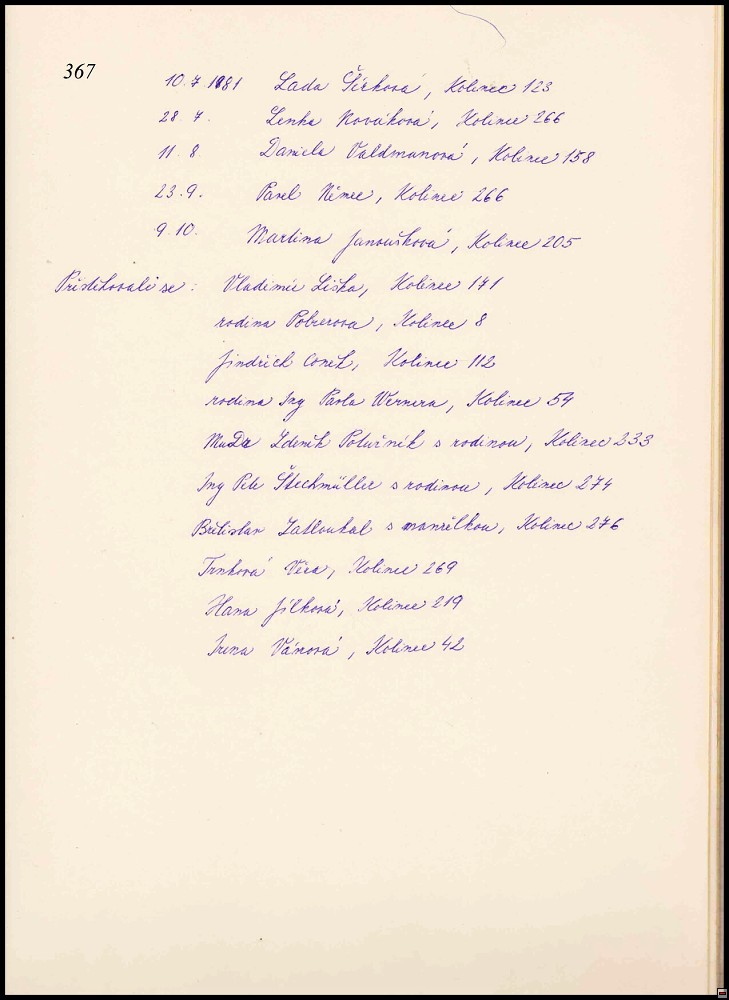 367
10.7.1981 Lada Šírková, Kolinec 123
28 7. Lenka Nováková, Kolinec 266
11. 8. Daniela Valdmanová, Kolinec 158
23.9. Pavel Němec, Kolinec 266
9.10. Martina Janoušková, Kolinec 205
Přistěhovali se: Vladimír Liška, Kolinec 141
rodina, Kolinec 8
Jindřich, Kolinec 112
rodina Ing Pavla Wernera, Kolinec 54
MuDr Zdeněk Potužník s rodinou, Kolinec 233
Ing Petr Štechmüller s rodinou, Kolinec 274
Břetislav Zatloukal s manželkou, Kolinec 276
Trnková Věra, Kolinec 269
Hana Jílková, Kolinec 219
Irena Vánová, Kolinec 42